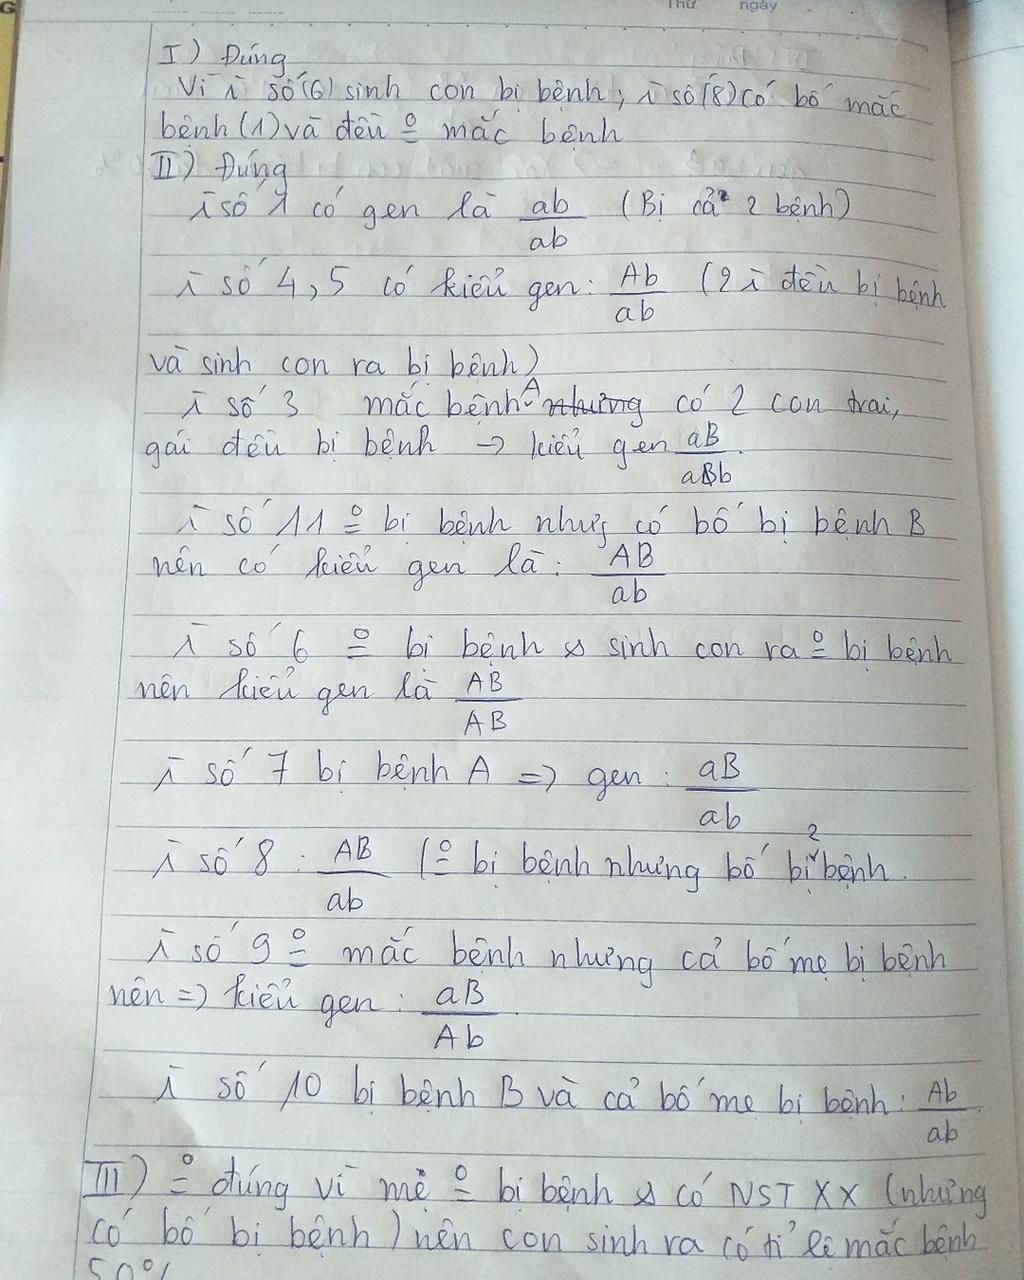 Thứ ngày
I) Đúng
Vì ī số (6) sinh con bị bệnh, ī số (8) có bố mắc
bệnh (1) và đều o mắc bệnh
II) Đúng
ī số 1 có gen là ab/ab (Bị cả 2 bệnh)
ī số 4, 5 có kiểu gen: Ab/ab (2 ī đều bị bệnh
và sinh con ra bị bệnh)
ī số 3 mắc bệnh A có 2 con trai,
gái đều bị bệnh → kiểu gen aB/ab
ī số 11 o bị bệnh nhưg có bố bị bệnh B
nên có kiểu gen là: AB/ab
ī số 6 o bị bệnh & sinh con ra o bị bệnh
nên kiểu gen là AB/AB
ī số 7 bị bệnh A => gen: aB/ab
ī số 8: AB/ab (o bị bệnh nhưng bố bị 2 bệnh.
ī số 9 o mắc bệnh nhưng cả bố mẹ bị bệnh
nên => kiểu gen: aB/Ab
ī số 10 bị bệnh B và cả bố mẹ bị bệnh: Ab/ab
III) o đúng vì mẹ o bị bệnh & có NST XX (nhưng
có bố bị bệnh) nên con sinh ra có tỉ lệ mắc bệnh
50%